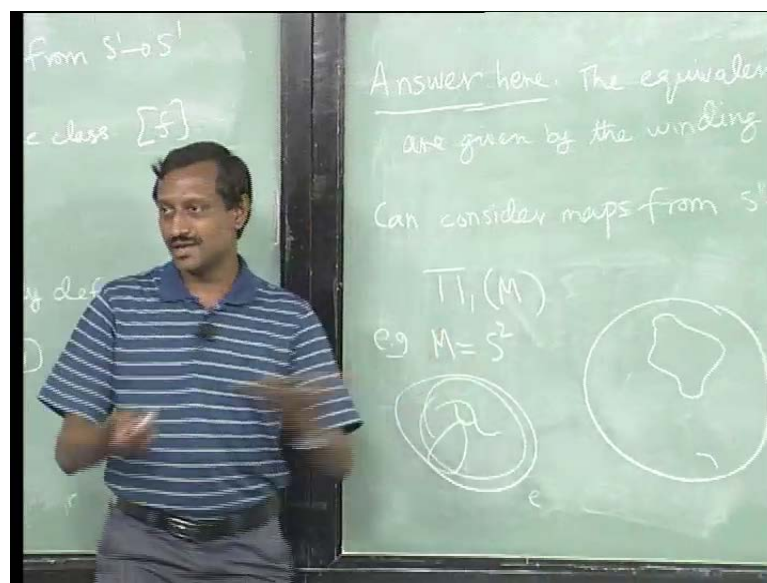 from S¹→S¹
class [f]
def
)
Answer here. The equivalen
are given by the winding
Can consider maps from S¹
Π₁(M)
e.g M = S²
e